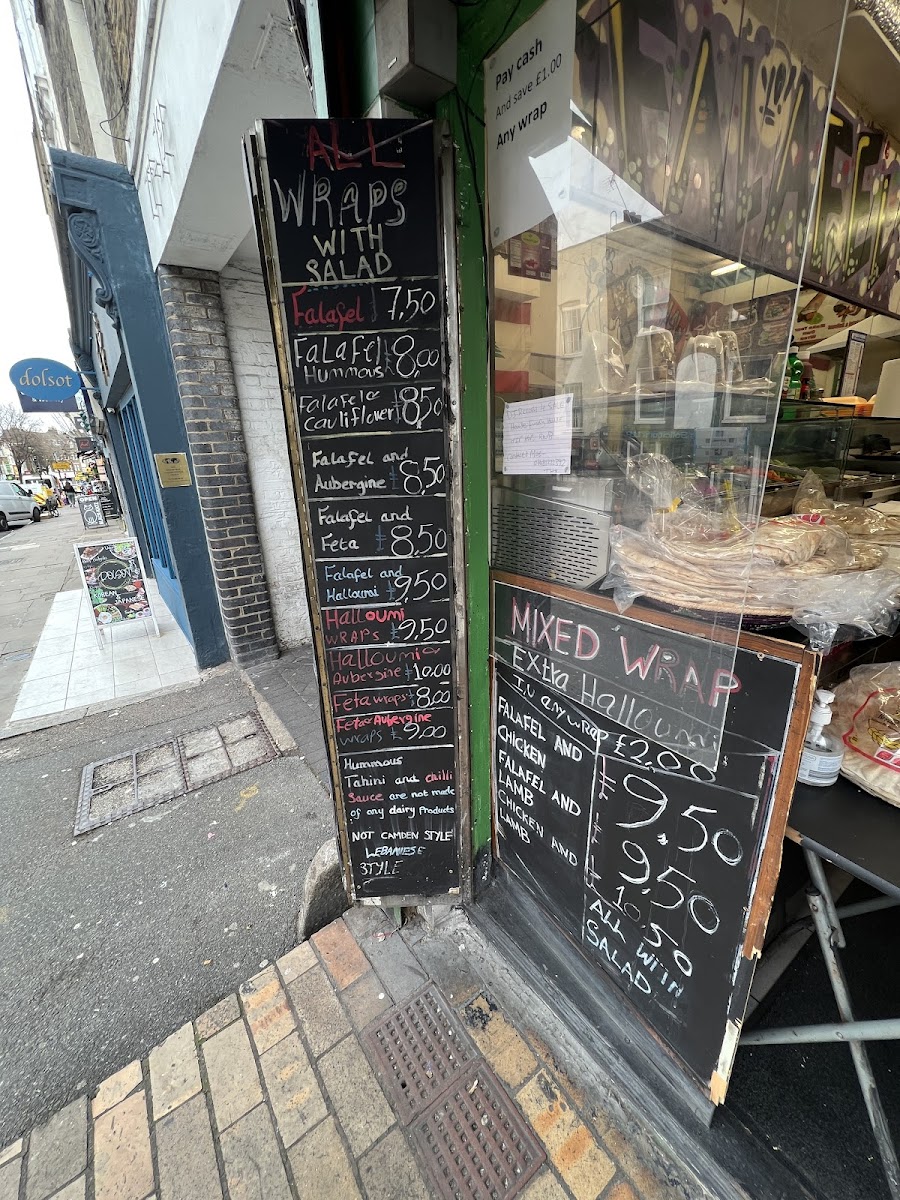 Pay cash
And save £1.00
Any wrap
FALAFEL
ALL
WRAPS
WITH
SALAD
Falafel 7,50
FALAFEL
HUMMOUS £8,00
FALAFEL &
CAULIFLOWER £8,50
Falafel and
Aubergine £8,50
Falafel and
Feta £8,50
Falafel and
Halloumi £9,50
Halloumi
WRAPS £9,50
Halloumi &
Aubergine £10.00
Feta wraps £8,00
Feta & Aubergine
wraps £9,00
HUMMOUS
Tahini and chilli
Sauce are not made
of any dairy Products
NOT CAMDEN STYLE
LEBANIESE
STYLE
MIXED WRAP
Extra Halloumi
I.U any wrap £2,00
FALAFEL AND
CHICKEN £9.50
FALAFEL AND
LAMB £9,50
CHICKEN AND
LAMB £10.50
ALL WITH
SALAD
dolsot
DOLSOT
KOREAN
JAPANESE